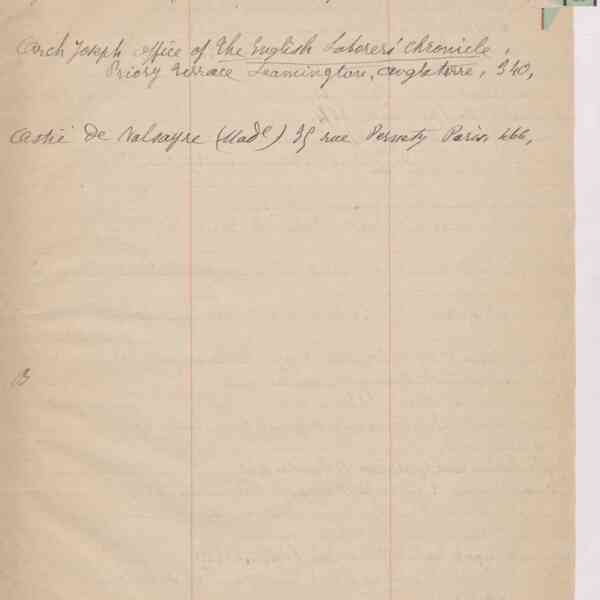 Arch Joseph office of The English Laborers' Chronicle,
Priory Terrace Leamington, Angleterre, 340,
Astié de Valsayre (Made) 35 rue Pernety Paris, 466,
B